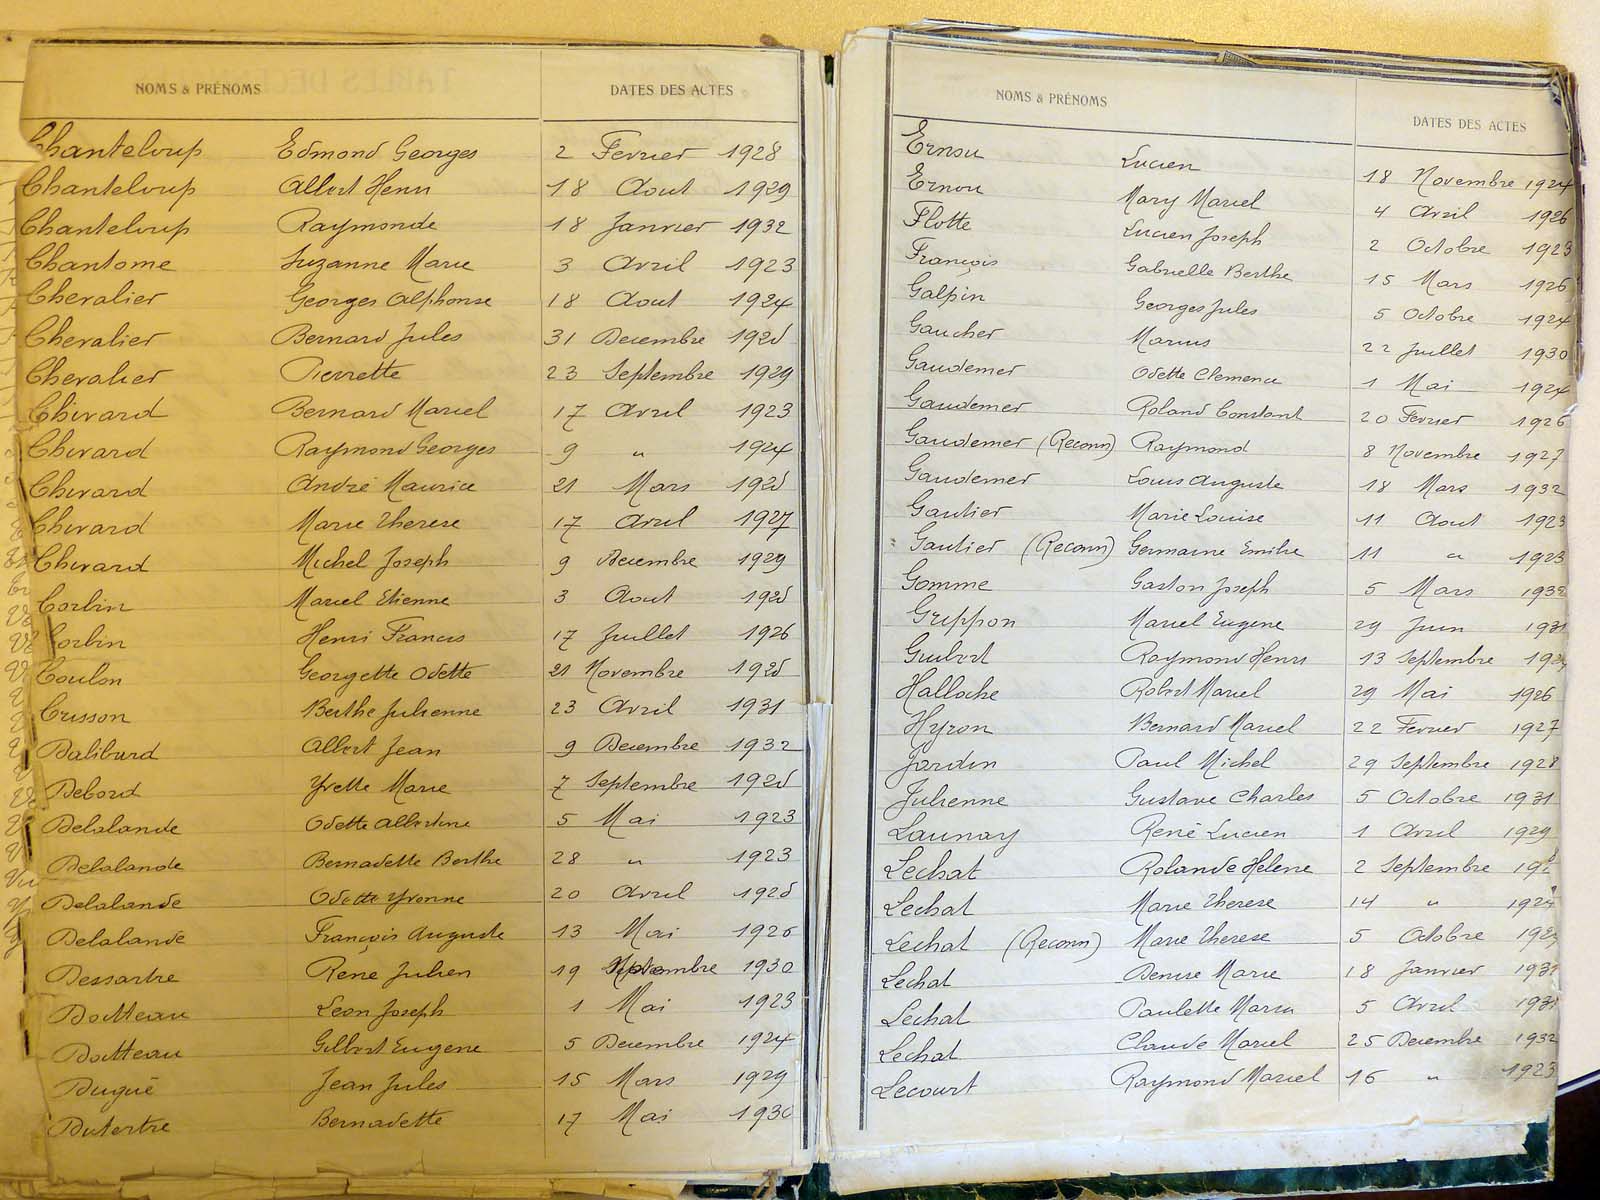 NOMS & PRÉNOMS DATES DES ACTES
Chanteloup Edmond Georges 2 Fevrier 1928
Chanteloup Albert Henri 18 Aout 1929
Chanteloup Raymonde 18 Janvier 1932
Chantome Suzanne Marie 3 Avril 1923
Chevalier Georges Alphonse 18 Aout 1924
Chevalier Bernard Jules 31 Decembre 1925
Chevalier Pierrette 23 Septembre 1929
Chevard Bernard Marcel 17 Avril 1923
Chevard Raymond Georges 9 " 1924
Chevard André Maurice 21 Mars 1925
Chevard Marie Therese 17 Avril 1927
Chevard Michel Joseph 9 Decembre 1929
Corbin Marcel Etienne 3 Aout 1925
Corbin Henri Francis 17 Juillet 1926
Coulon Georgette Odette 21 Novembre 1925
Cusson Berthe Julienne 23 Avril 1931
Daliburd Albert Jean 9 Decembre 1932
Debord Yvette Marie 7 Septembre 1925
Delalande Odette Albertine 5 Mai 1923
Delalande Bernadette Berthe 28 " 1923
Delalande Odette Yvonne 20 Avril 1925
Delalande François Auguste 13 Mai 1926
Dessartre René Julien 19 Novembre 1930
Dotteau Leon Joseph 1 Mai 1923
Dotteau Gilbert Eugene 5 Decembre 1924
Dugué Jean Jules 15 Mars 1929
Dutertre Bernadette 17 Mai 1930
NOMS & PRÉNOMS DATES DES ACTES
Ernou Lucien 18 Novembre 1924
Ernou Mary Marcel 4 Avril 1926
Flotte Lucien Joseph 2 Octobre 1923
François Gabrielle Berthe 15 Mars 1926
Galpin Georges Jules 5 Octobre 1924
Gaucher Marius 22 Juillet 1930
Gaudemer Odette Clemence 1 Mai 1924
Gaudemer Roland Constant 20 Fevrier 1926
Gaudemer (Reconn) Raymond 8 Novembre 1927
Gaudemer Louis Auguste 18 Mars 1932
Gautier Marie Louise 11 Aout 1923
Gautier (Reconn) Germaine Emilie 11 " 1923
Gomme Gaston Joseph 5 Mars 1932
Grippon Marcel Eugene 29 Juin 1931
Guibert Raymond Henri 13 Septembre
Halloche Robert Marcel 29 Mai 1926
Hyron Bernard Marcel 22 Fevrier 1927
Jardin Paul Michel 29 Septembre 1928
Julienne Gustave Charles 5 Octobre 1931
Launay René Lucien 1 Avril 1929
Lechat Rolande Helene 2 Septembre
Lechat Marie Therese 14 " 1924
Lechat (Reconn) Marie Therese 5 Octobre
Lechat Denise Marie 18 Janvier 1931
Lechat Paulette Maria 5 Avril 1931
Lechat Claude Marcel 25 Decembre 1932
Lecourt Raymond Marcel 16 " 1923